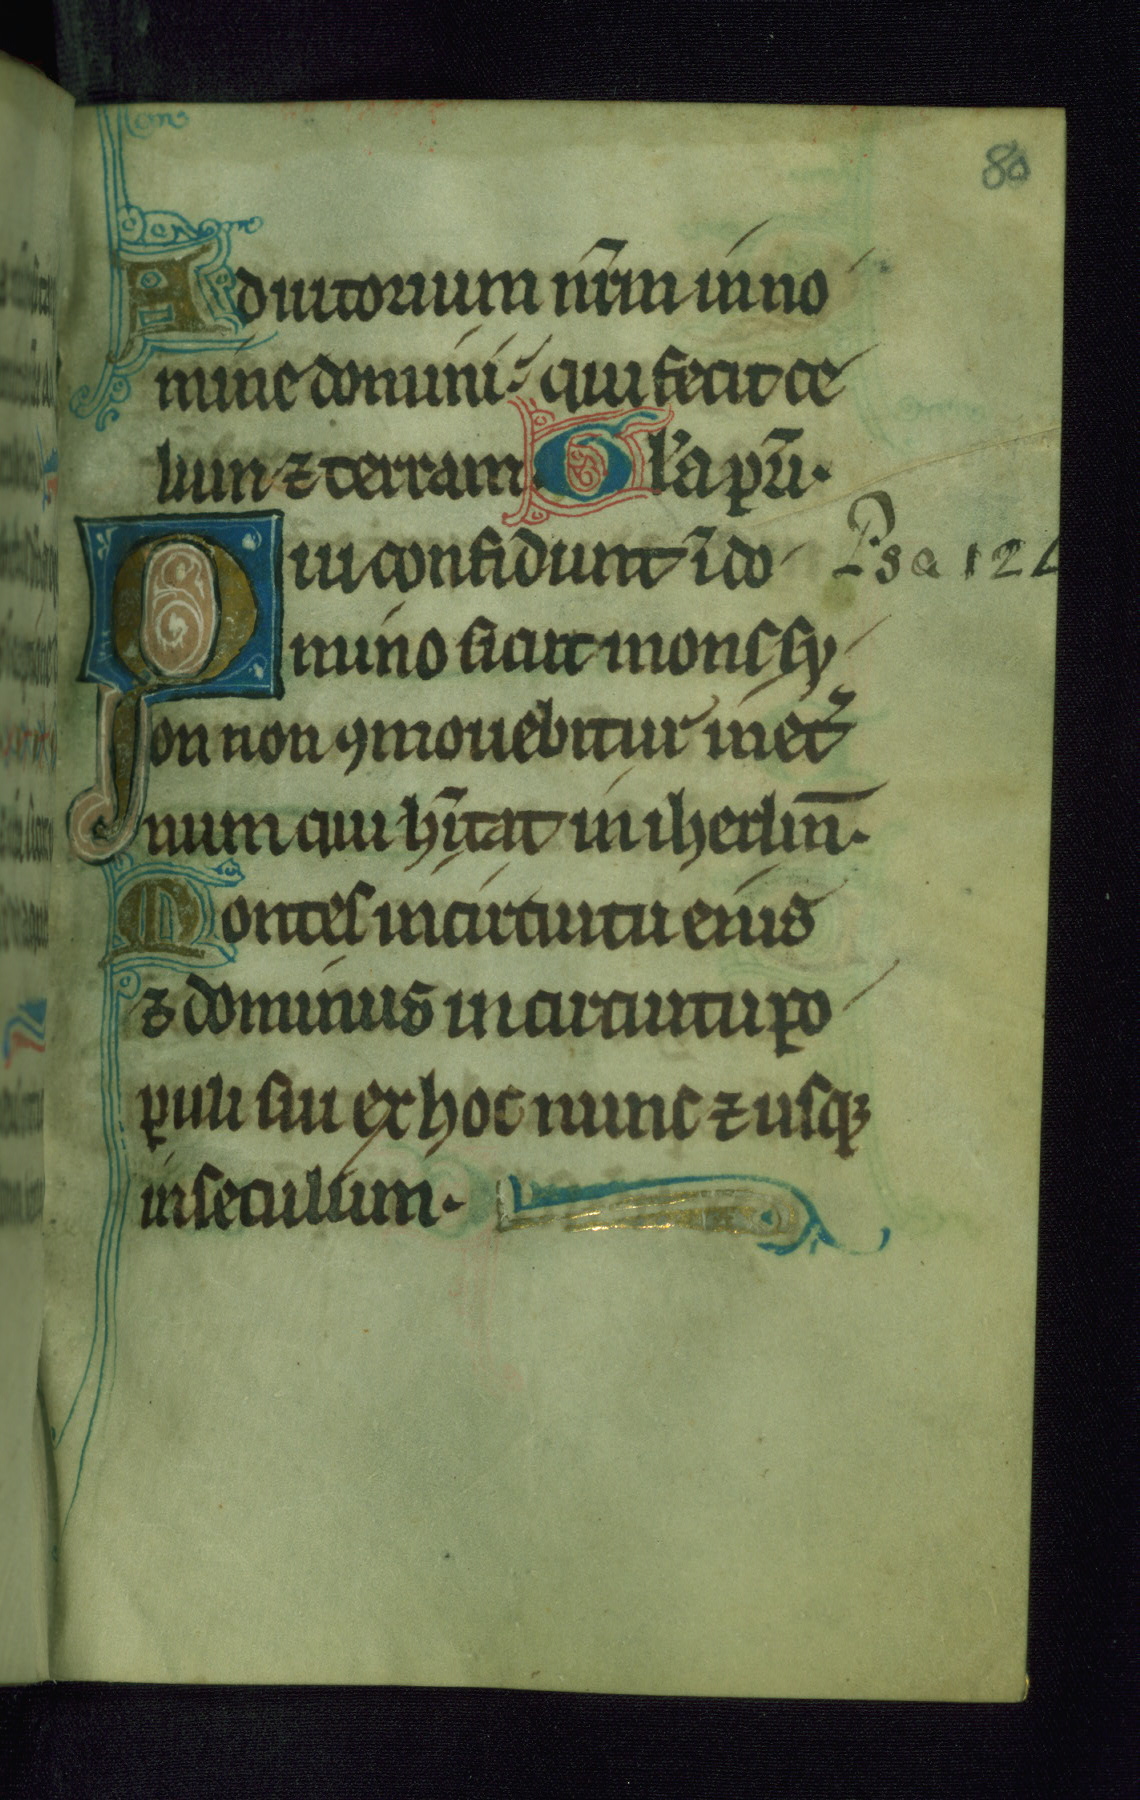 80
Adiutorium nr̄m in no
mine domini qui fecit ce
lum ⁊ terram. Gl'a pr̄i.
Qui confidunt ī do
Psa 12
mino sicut mons sy
on non ꝯmouebitur in et̾
num qui hītat in iherlm̄.
Montes in circuitu eius
⁊ dominus in circuitu po
puli sui ex hoc nunc ⁊ usqꝫ
in seculum.